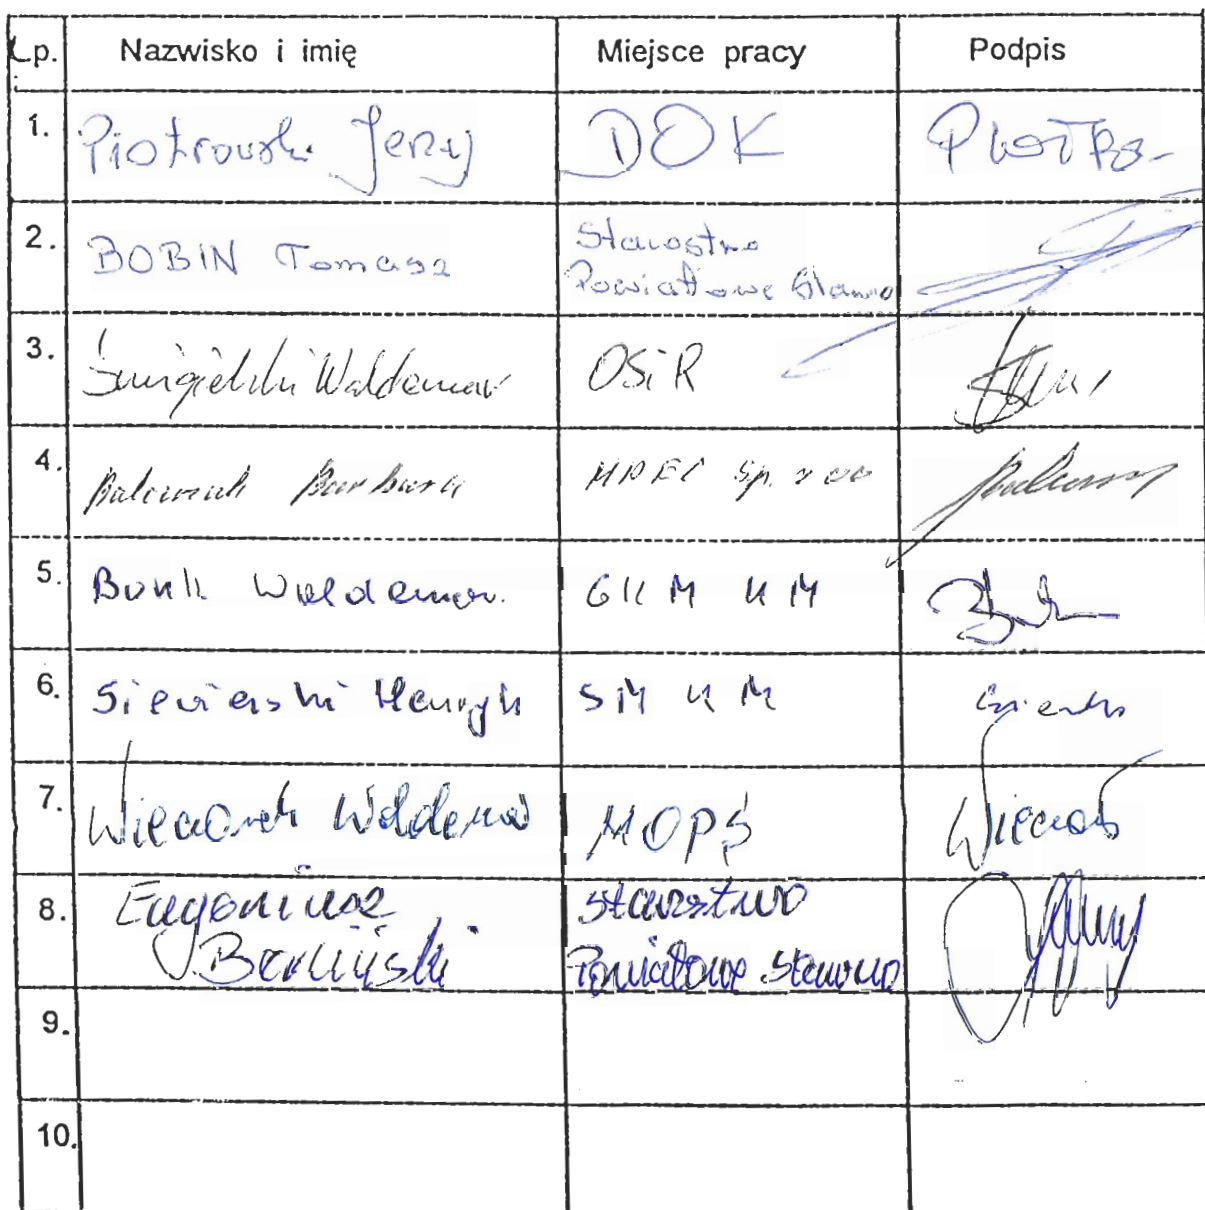 Lp. Nazwisko i imię Miejsce pracy Podpis
1. Piotrowski Jerzy DOK Piotro-
2. BOBIN Tomasz Starostwo
Powiatowe Sławno
3. Śmigielski Waldemar OSiR
4. Barbara MPEC Sp. z oo
5. Bonk Waldemar. GKM UM
6. Siewierski Henryk SM UM
7. Wieczorek Waldemar MOPS Wieczorek
8. Eugeniusz Starostwo
Powiatowe Sławno
9.
10.